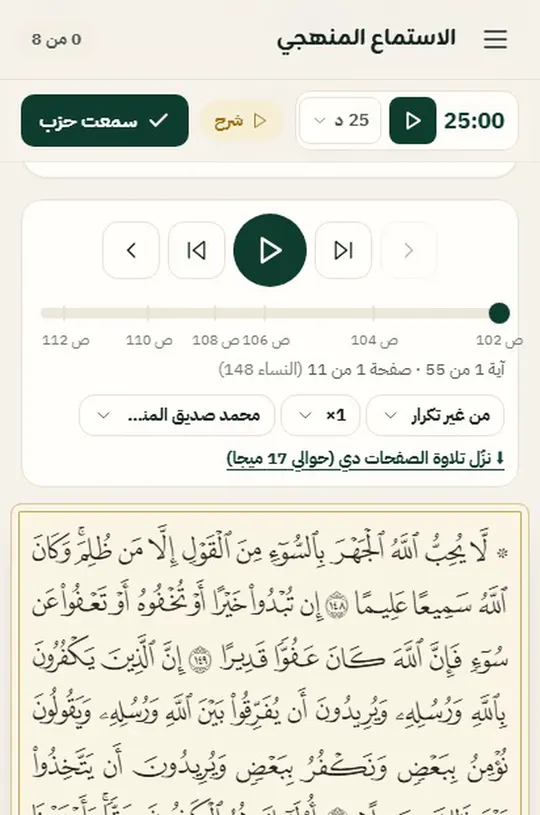 الاستماع المنهجي
0 من 8
25:00
25 د
شرح
سمعت حزب
ص 102
ص 104
ص 106
ص 108
ص 110
ص 112
آية 1 من 55 · صفحة 1 من 11 (النساء 148)
من غير تكرار
1×
محمد صديق المنـ...
⬇ نزّل تلاوة الصفحات دي (حوالي 17 ميجا)
۞ لَّا يُحِبُّ ٱللَّهُ ٱلْجَهْرَ بِٱلسُّوٓءِ مِنَ ٱلْقَوْلِ إِلَّا مَن ظُلِمَۚ وَكَانَ
ٱللَّهُ سَمِيعًا عَلِيمًا ١٤٨ إِن تُبْدُوا۟ خَيْرًا أَوْ تُخْفُوهُ أَوْ تَعْفُوا۟ عَن
سُوٓءٍ فَإِنَّ ٱللَّهَ كَانَ عَفُوًّا قَدِيرًا ١٤٩ إِنَّ ٱلَّذِينَ يَكْفُرُونَ
بِٱللَّهِ وَرُسُلِهِۦ وَيُرِيدُونَ أَن يُفَرِّقُوا۟ بَيْنَ ٱللَّهِ وَرُسُلِهِۦ وَيَقُولُونَ
نُؤْمِنُ بِبَعْضٍ وَنَكْفُرُ بِبَعْضٍ وَيُرِيدُونَ أَن يَتَّخِذُوا۟